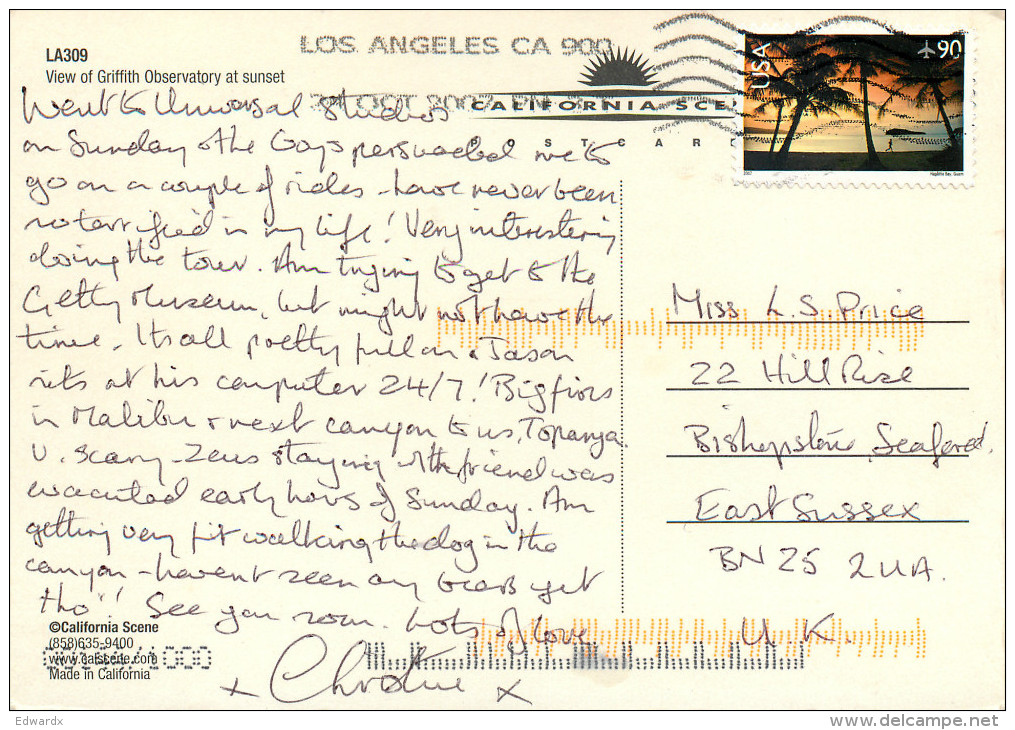 LA309
View of Griffith Observatory at sunset
LOS ANGELES CA 900
24 OCT 2007 PM
CALIFORNIA SCE
S T C A R
USA
90
2007
Hagåtña Bay, Guam
Went to Universal Studios
on Sunday & the Guys persuaded me to
go on a couple of rides - have never been
so terrified in my life! Very interesting
doing the tour. Am trying to get to the
Getty Museum, but might not have the
time. Its all pretty full on & Jason
sits at his computer 24/7! Big fires
in Malibu & next canyon to us, Topanga.
V. scary - Zeus staying with friend was
evacuated early hours of Sunday. Am
getting very fit walking the dog in the
canyon - havent seen any bears yet
tho'! See you soon. Lots of love
x Christine x
Miss L. S. Price
22 Hill Rise
Bishopstone, Seaford,
East Sussex
BN25 2UA.
U.K.
©California Scene
(858)635-9400
www.calscene.com
Made in California
Edwardx
www.delcampe.net